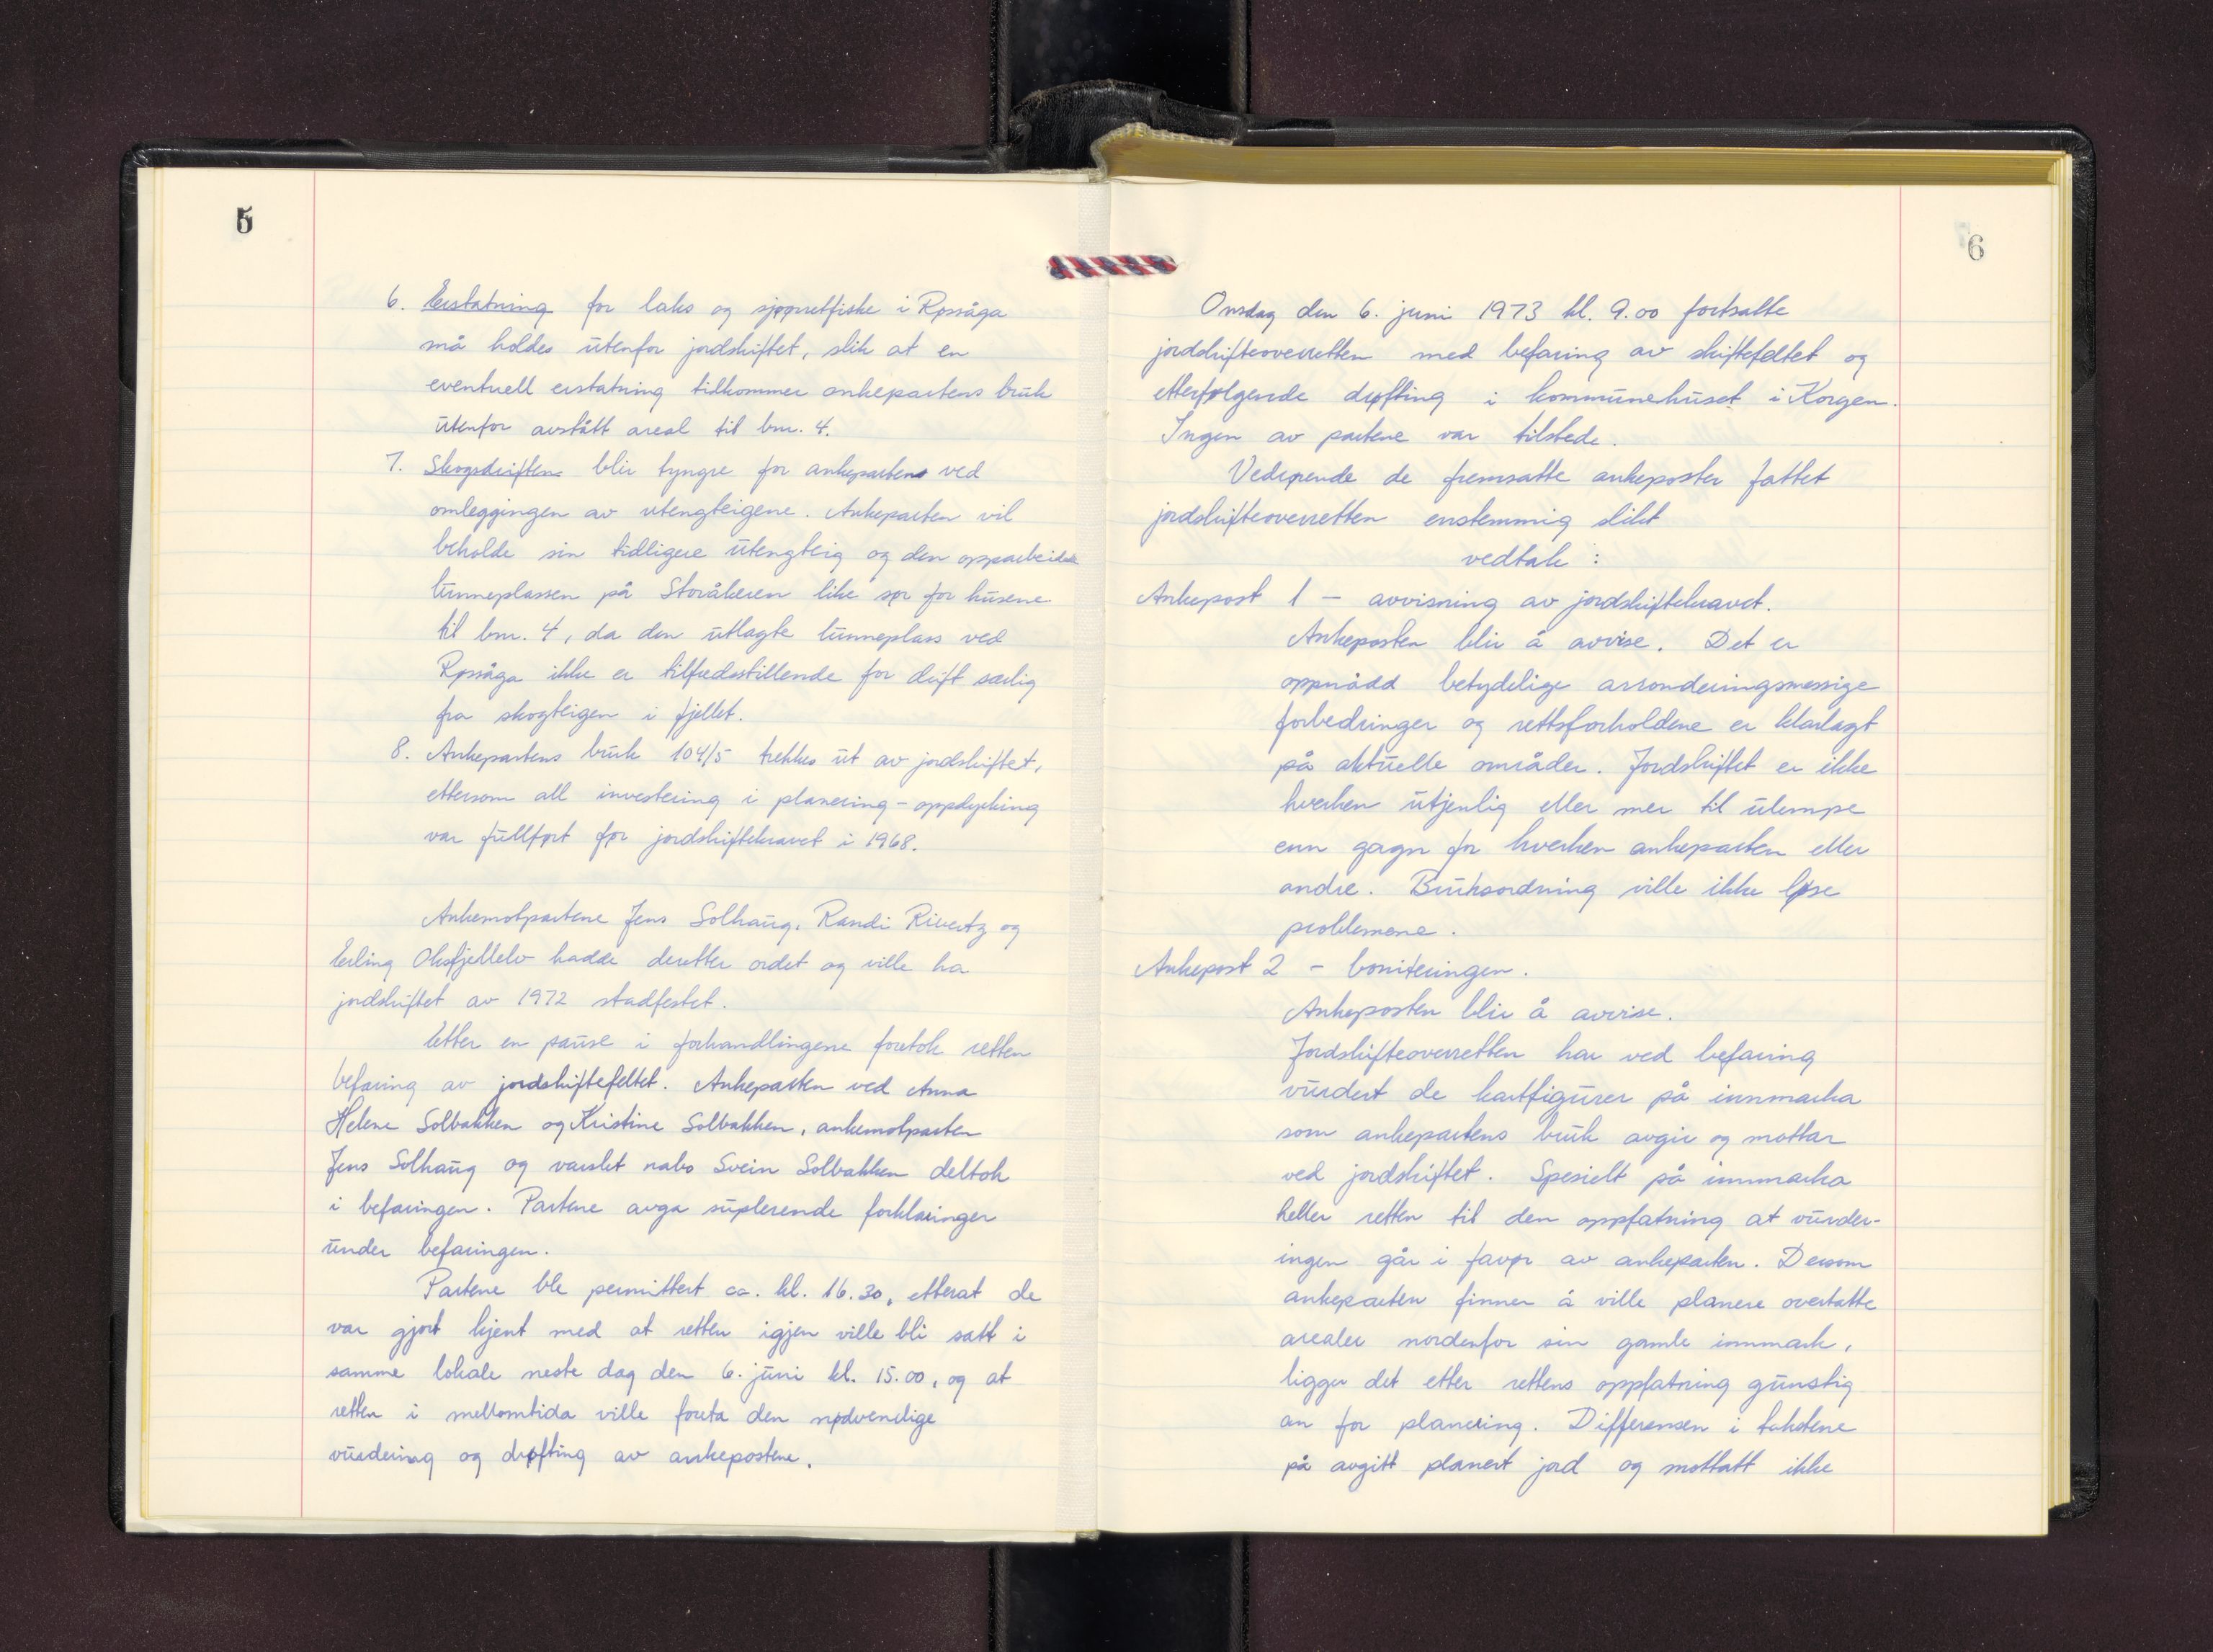 5
6. Erstatning for laks og sjøørretfiske i Røssåga
må holdes utenfor jordskiftet, slik at en
eventuell erstatning tilkommer ankepartens bruk
utenfor avstått areal til bnr. 4.
7. Skogsdriften blir tyngre for ankeparten ved
omleggingen av utengteigene. Ankeparten vil
beholde sin tidligere utengteig og den opparbeidede
lunneplassen på Storåkeren like sør for husene
til bnr. 4, da den utlagte lunneplass ved
Røssåga ikke er tilfredsstillende for drift særlig
fra skogteigen i fjellet.
8. Ankepartens bruk 104/5 trekkes ut av jordskiftet,
ettersom all investering i planering - oppdyrking
var fullført før jordskiftekravet i 1968.
Ankemotpartene Jens Solhaug, Randi Rivertz og
Erling Oksfjellelv hadde deretter ordet og ville ha
jordskiftet av 1972 stadfestet.
Etter en pause i forhandlingene foretok retten
befaring av jordskiftefeltet. Ankeparten ved Anna
Helene Solbakken og Kristine Solbakken, ankemotparten
Jens Solhaug og varslet nabo Svein Solbakken deltok
i befaringen. Partene avga suplerende forklaringer
under befaringen.
Partene ble permittert ca. kl. 16.30, etterat de
var gjort kjent med at retten igjen ville bli satt i
samme lokale neste dag den 6. juni kl. 15.00, og at
retten i mellomtida ville foreta den nødvendige
vurdering og drøfting av ankepostene.
6
Onsdag den 6. juni 1973 kl. 9.00 fortsatte
jordskifteoverretten med befaring av skiftefeltet og
etterfølgende drøfting i kommunehuset i Korgen.
Ingen av partene var tilstede.
Vedrørende de fremsatte ankeposter fattet
jordskifteoverretten enstemmig slikt
vedtak :
Ankepost 1 - avvisning av jordskiftekravet.
Ankeposten blir å avvise. Det er
oppnådd betydelige arronderingsmessige
forbedringer og rettsforholdene er klarlagt
på aktuelle områder. Jordskiftet er ikke
hverken utjenlig eller mer til ulempe
enn gagn for hverken ankeparten eller
andre. Bruksordning ville ikke løse
problemene.
Ankepost 2 - boniteringen.
Ankeposten blir å avvise.
Jordskifteoverretten har ved befaring
vurdert de kartfigurer på innmarka
som ankepartens bruk avgir og mottar
ved jordskiftet. Spesielt på innmarka
heller retten til den oppfatning at vurder-
ingen går i favør av ankeparten. Dersom
ankeparten finner å ville planere overtatte
arealer nordenfor sin gamle innmark,
ligger det etter rettens oppfatning gunstig
an for planering. Differensen i takstene
på avgitt planert jord og mottatt ikke